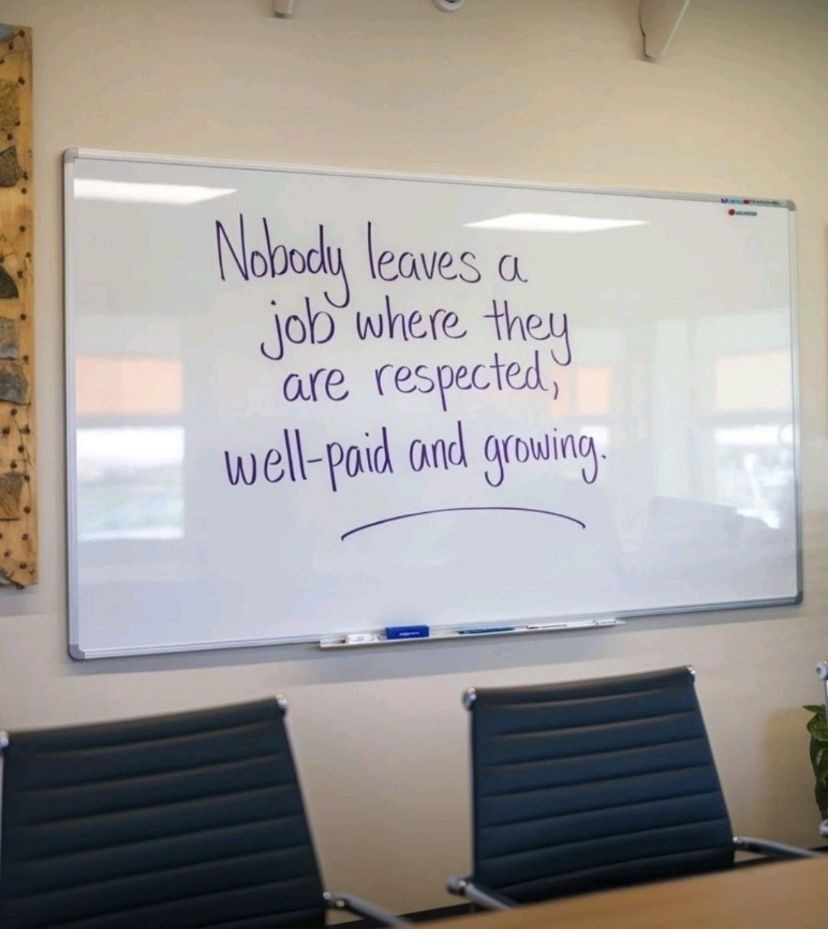 Nobody leaves a
job where they
are respected,
well-paid and growing.